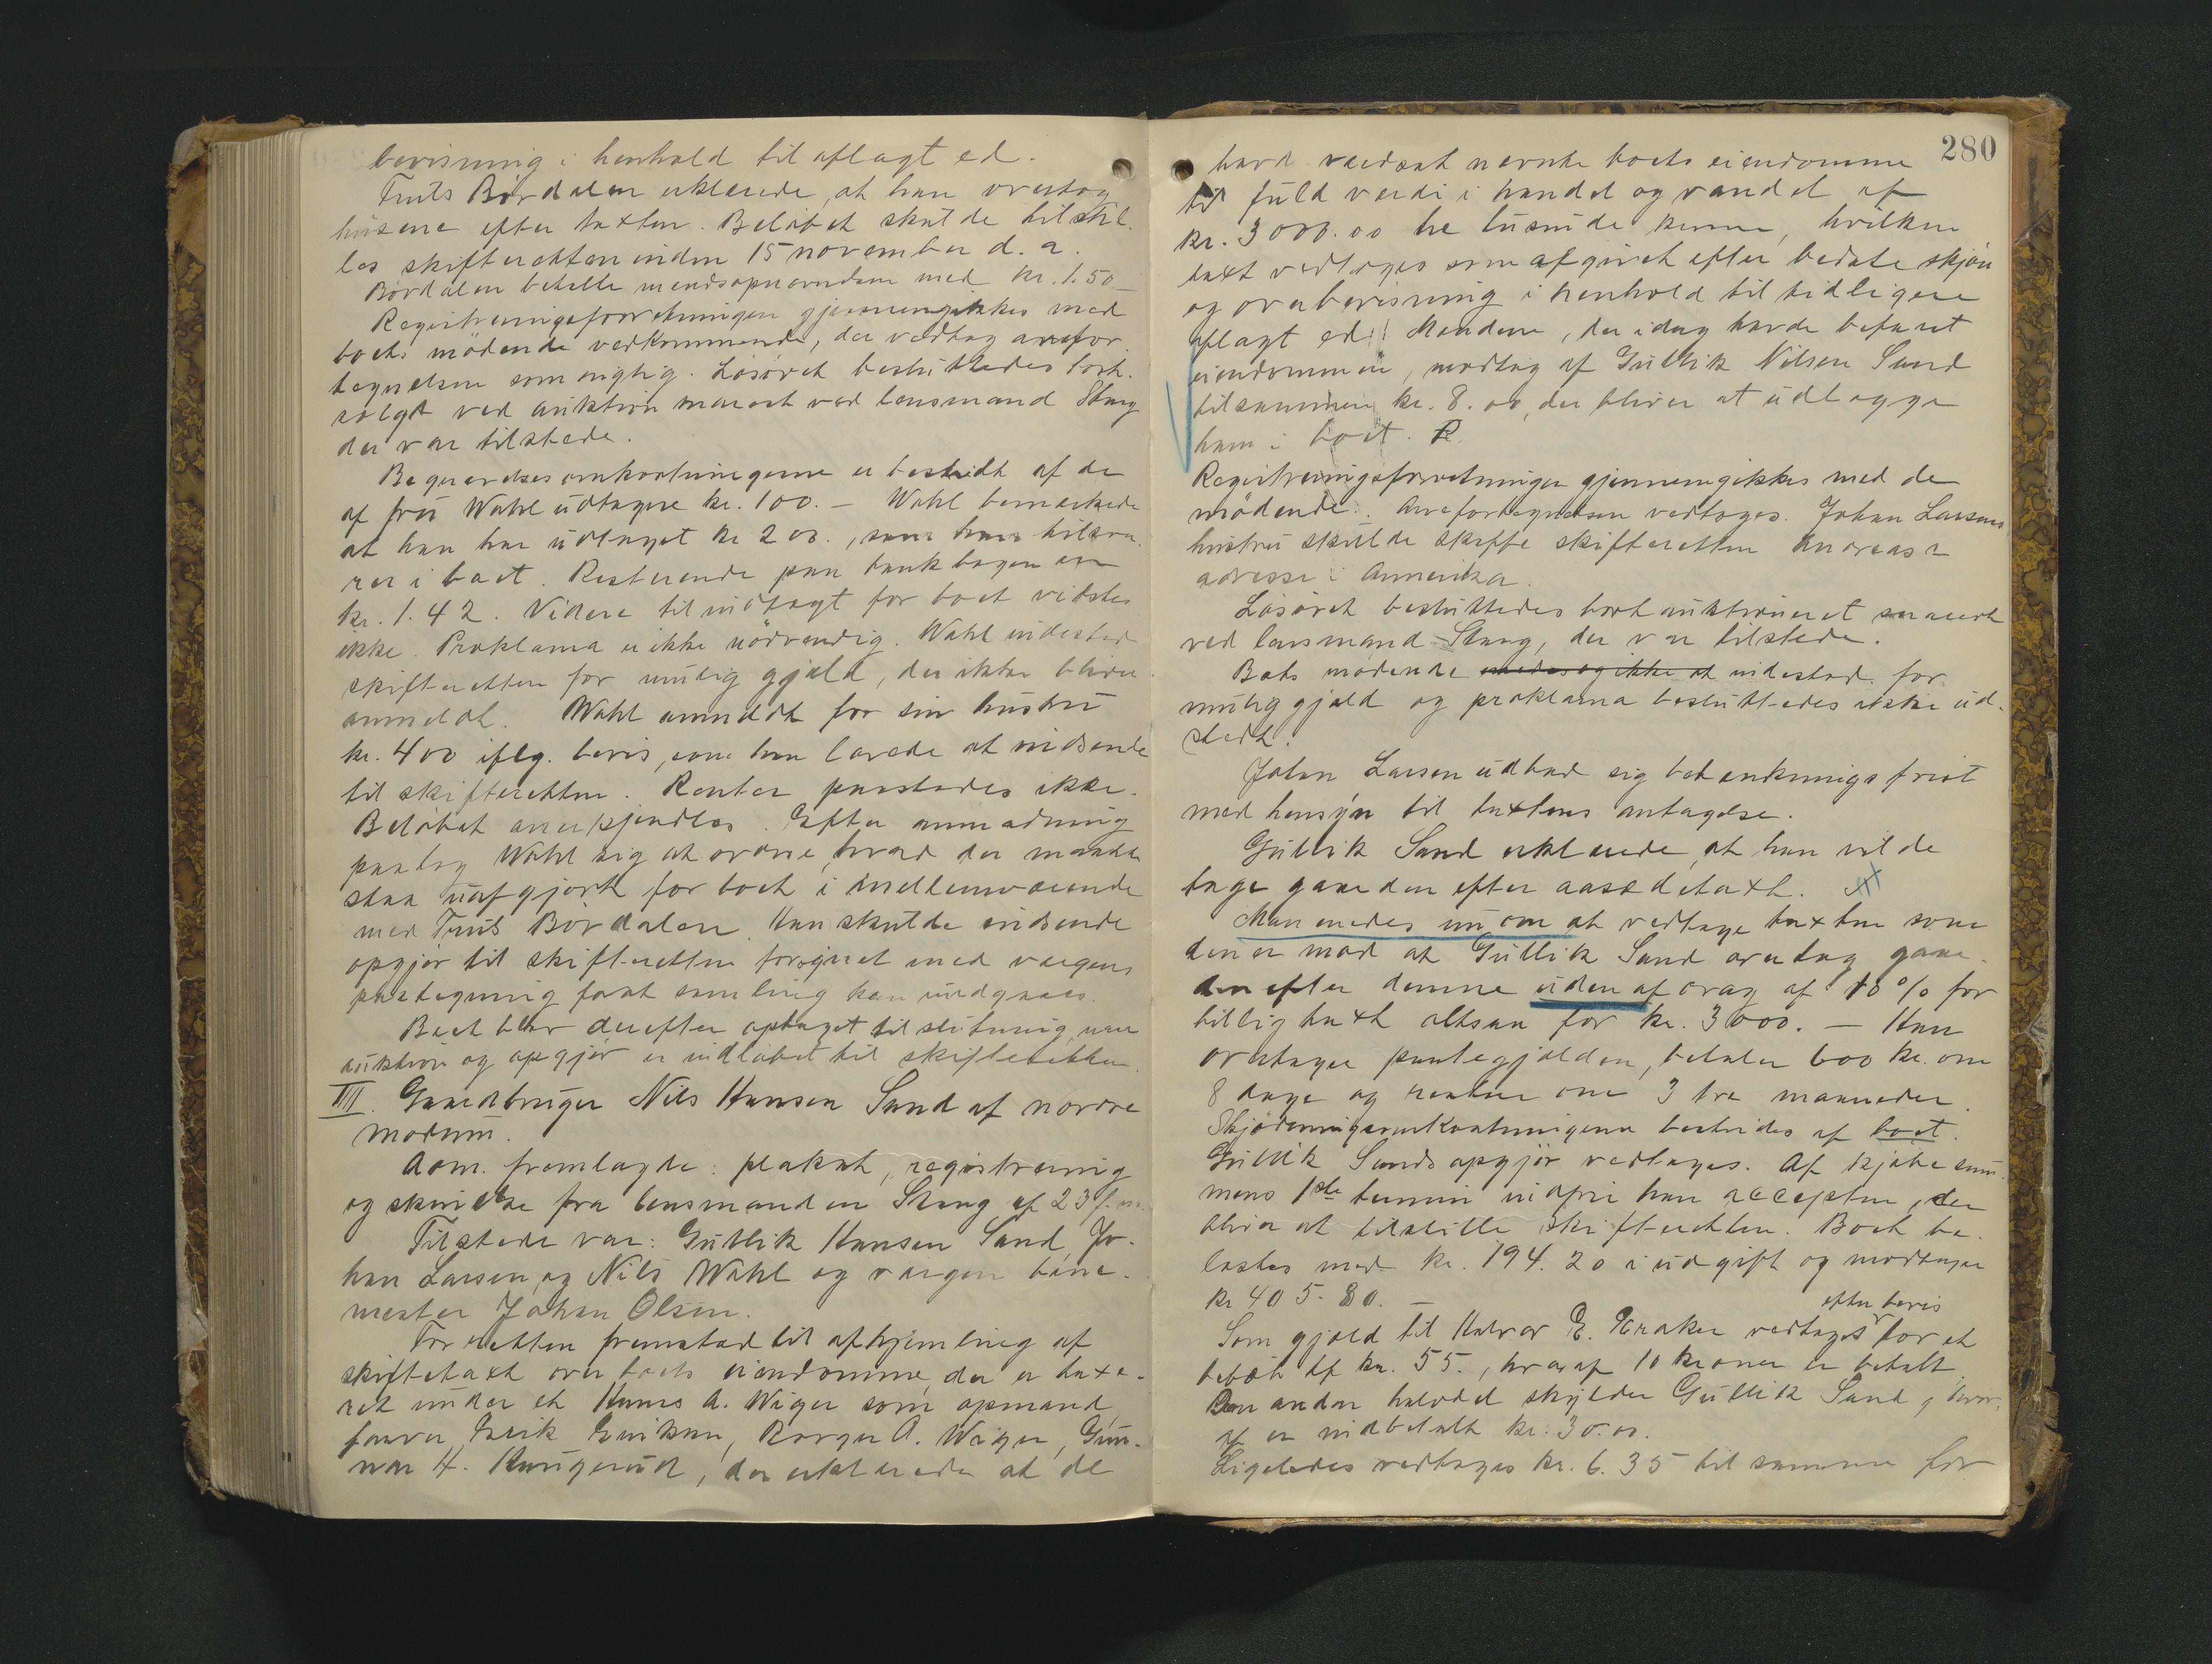 bevisning i henhold til aflagt ed.
Truls Bördalen erklærede, at han overtog
husene efter taxten. Belöbet skulde tilstil-
les skifteretten inden 15 november d. a.
Bördalen betalte mendsopnævnelsen med kr. 1.50
Registreringsforretningen gjennemgikkes med
boets mödende vedkommende, der vedtog arvefor-
tegnelsen som rigtig. Lösöret besluttedes bort-
solgt ved auktion snarest ved lensmand Stang
der var tilstede.
Begravelsesomkostningerne er bestridt af de
af fru Wahl udtagne kr. 100. — Wahl bemærkede
at han har udtaget kr 200., som han tilsva-
rer i boet. Resterende paa bankbogen er
kr. 1.42. Videre tilindtægt for boet vidstes
ikke. Proklama er ikke nödvendig. Wahl indestod
skifteretten for mulig gjæld, der ikke bliver
anmeldt. Wahl anmeldt for sin hustru
kr. 400 iflg. bevis, som han lovede at indsende
til skifteretten. Renter paastodes ikke.
Belöbet anerkjendtes. Efter anmodning
paatog Wahl sig at ordne, hvad der maatte
staa uafgjort for boet i mellemværende
med Truls Bördalen. Han skulde indsende
opgjör til skifteretten forsynet med værgens
paategning forat samling kan undgaaes.
Boet blev derefter optaget til slutning, naar
auktion og opgjör er indlöbet til skifteretten.
III. Gaardbruger Nils Hansen Sand af nordre
modum.
Adm. fremlagde: plakat, registrering
og skrivelse fra lensmanden Stang af 23 f. m.
Tilstede var: Gullik Hansen Sand, Jo-
han Larsen, og Nils Wahl og værgen bane-
mester Johan Olsen.
For retten fremstod til afhjemling af
skiftetaxt over boets eiendomme, der er taxe-
ret under et Hans A. Wiger som opmand
Erik Eriksen, Borger A. Wiger, Gun-
nar H. Kungerud, der erklærede at de
280
havd værdsat nævnte boets eiendomme
til fuld verdi i handel og vandel af
kr. 3000.00 tre tusinde kroner, hvilken
taxt vedtoges som afgivet efter bedste skjön
og overbevisning i henhold til tidligere
aflagt ed. Mændene, der idag havde befaret
eiendommen, modtog af Gullik Nilsen Sand
tilsammen kr. 8.00, der bliver at udlægge
ham i boet.
Registreringsforretningen gjennemgikkes med de
mödende. Arvefortegnelsen vedtoges. Johan Larsens
hustru skulde skaffe skifteretten Andreas's
adresse i Amerika.
Lösöret besluttedes bortauktioneret snarest
ved lensmand Stang, der var tilstede.
Bots mödende indestod for
mulig gjæld og proklama besluttedes ikke ud-
stedt.
Johan Larsen udbad sig betænkningsfrist
med hensyn til taxtens antagelse.
Gullik Sand erklærede, at han vilde
tage gaarden efter aasædetaxt.
Man enedes nu om at vedtage taxten som
den er mod at Gullik Sand overtog gaar-
den efter denne uden afdrag af 10 % for
billig taxt altsaa for kr. 3000. — Han
overtager pantegjælden, betaler 600 kr. om
8 dage og resten om 3 tre maaneder.
Skjödningsomkostningerne bestrides af boet.
Gullik Sands opgjör vedtoges. Af kjöbesum-
mens 1ste termin indfrir han accepten, der
bliver at tilstille skifteretten. Boet be-
lastes med kr. 194.20 i udgift og modtager
kr 405.80. —
efter bevis
Som gjæld til Halvor E. Kraker vedtoges for et
belöb af kr. 55., hvoraf 10 kroner er betalt.
Den anden halvdel skylder Gullik Sand, hvor-
af er indbetalt kr. 30.00.
Ligeledes vedtoges kr. 6.35 til samme for